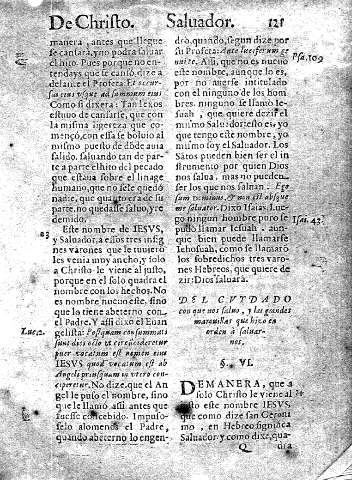 De Christo. Saluador. 121
manera, antes que llegue
se cansara, y no podra saluar
el hito. Pues porque no en-
tendays que se cansò, dize a-
delante el Profeta: Et occur-
sus eius vsque ad summum eius
Como si dixera: Tan lexos
estuuo de cansarse, que con
la misma ligereza que co-
mençò, con essa se boluio al
mismo puesto de dõde auia
salido, saluando tan de par-
te a parte el hito del pecado
que estaua sobre el linage
humano, que no se le quedò
nadie, que quanto era de su
parte, no quedasse saluo, y re-
demido.
23
Este nombre de IESVS,
y Saluador, a essos tres insig
nes varones que le tuuieron
les venia muy ancho, y solo
a Christo le viene al justo,
porque en el solo quadra el
nombre con los hechos. No
es nombre nueuo este, sino
que lo tiene abeterno con
Luc. 2.
el Padre. Y assi dixo el Euan
gelista: Postquam consummati
sunt dies octo vt circuncideretur
puer vocatum est nomen eius
IESVS quod vocatum est ab
Angelo priusquam in vtero con-
ciperetur. No dize, que el An
gel le puso el nombre, sino
que le llamò assi antes que
fuesse concebido. Impuso-
selo alomenos el Padre,
quando abeterno lo engen-
drò, quando, segun dize por
su Profeta: Ante luciferum ge
Psa. 109
nui te. Assi, que no es nueuo
este nombre, aunque lo es,
por no auerse intitulado
con el ninguno de los hom-
bres. ninguno se llamò Ie-
suah, que quiere dezir el
mismo Saluador: esto es, yo
que tengo este nombre, yo
mismo soy el Saluador. Los
Sãtos pueden bien ser el in
strumento por quien Dios
nos salua, mas no pueden
ser los que nos saluan. Ego
sum Dominus, & non est absque
me saluator. Dixo Isaias. Lue
Isai. 43.
go ningun hombre puro se
pudo llamar Iesuah, aun-
que bien puede llamarse
Iehosuah, como se llamarõ
los sobredichos tres varo-
nes Hebreos, que quiere de
zir: Dios saluarà.
DEL CVYDADO
con que nos saluò, y las grandes
marauillas que hizo en
orden à saluar-
nos.
§. VI.
DE MANERA, que a
solo Christo le viene al
24
justo este nombre IESVS,
que como dize san Geroni
mo, en Hebreo significa
Saluador y como dixe, qua-
Q
dra